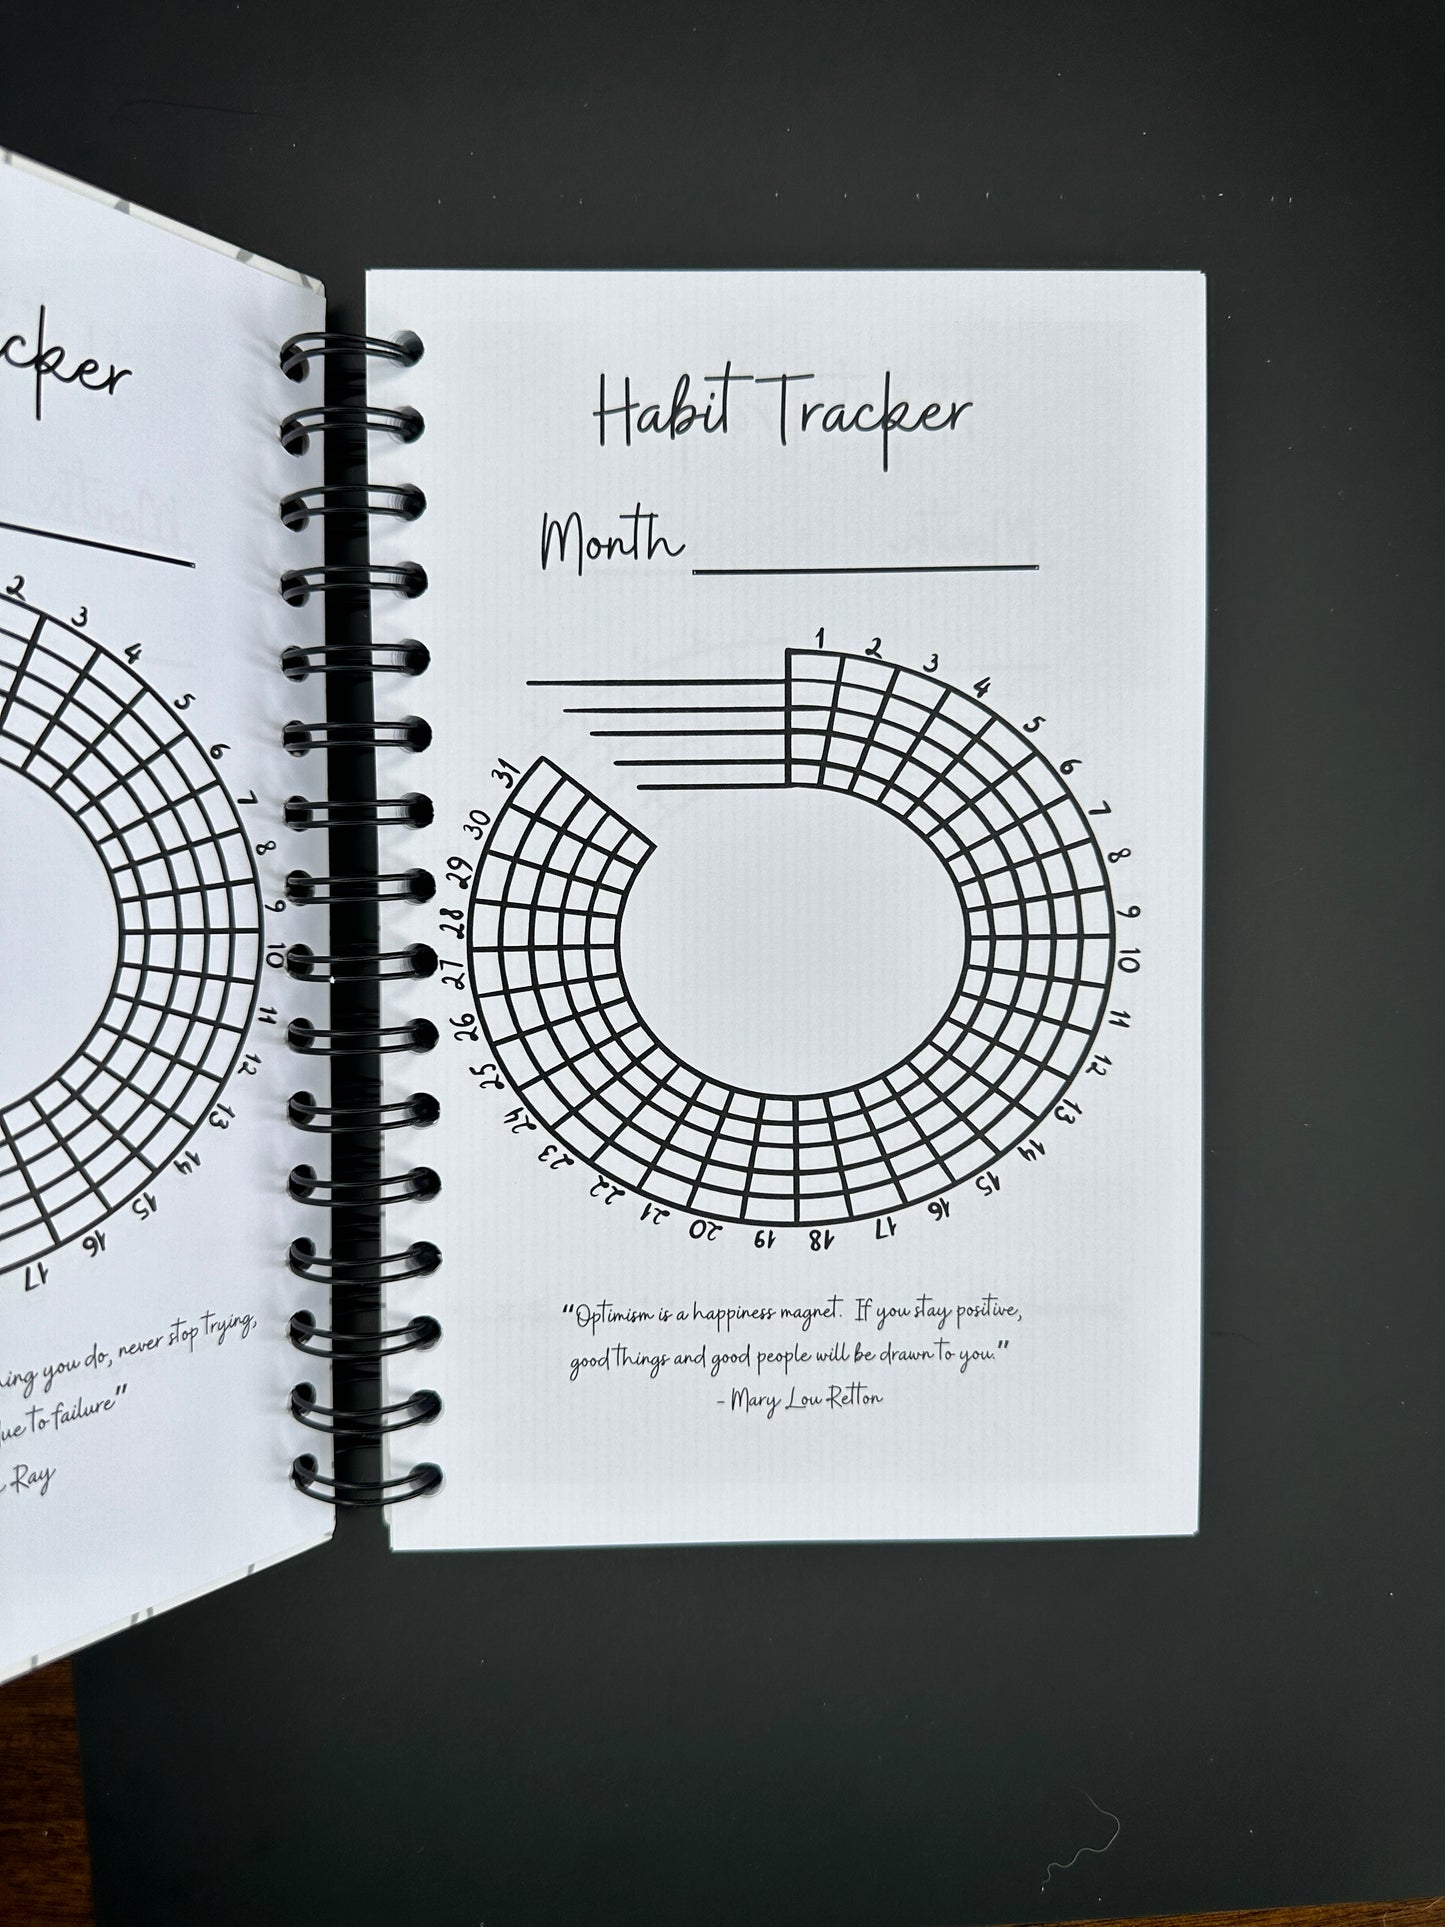 2
3
4
5
6
7
8
9
10
11
12
13
14
15
16
17
you do, never stop trying,
to failure"
Ray
Habit Tracker
Month
1
2
3
4
5
6
7
8
9
10
11
12
13
14
15
16
17
18
19
20
21
22
23
24
25
26
27
28
29
30
31
"Optimism is a happiness magnet. If you stay positive,
good things and good people will be drawn to you."
- Mary Lou Retton